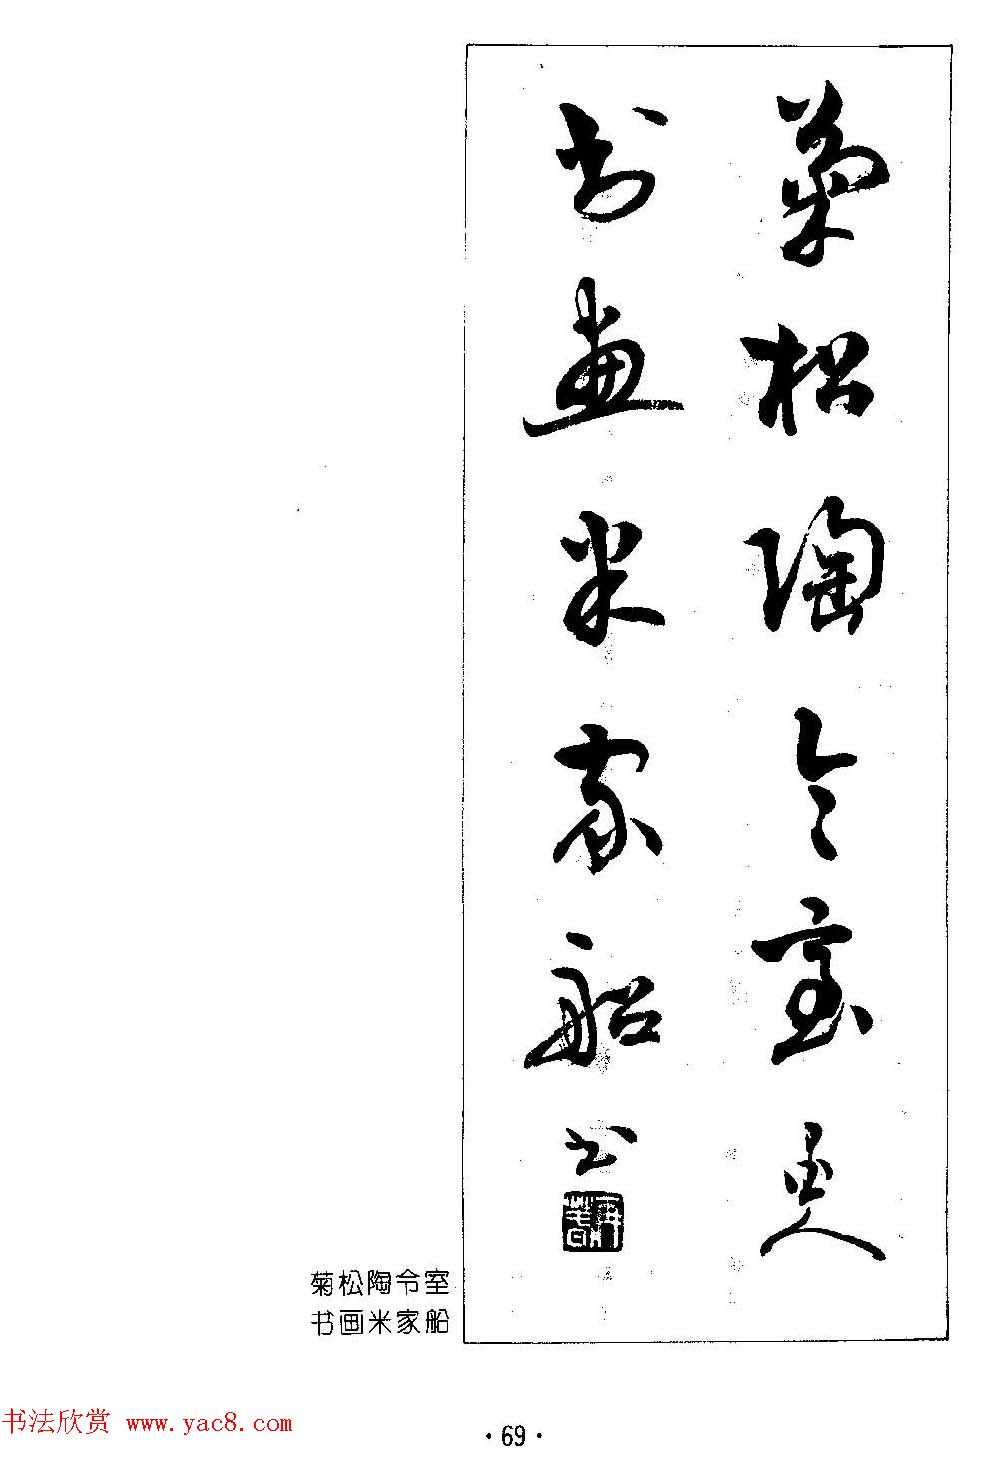 菊松陶令室
书画米家船 书
菊松陶令室
书画米家船
书法欣赏 www.yac8.com
·69·